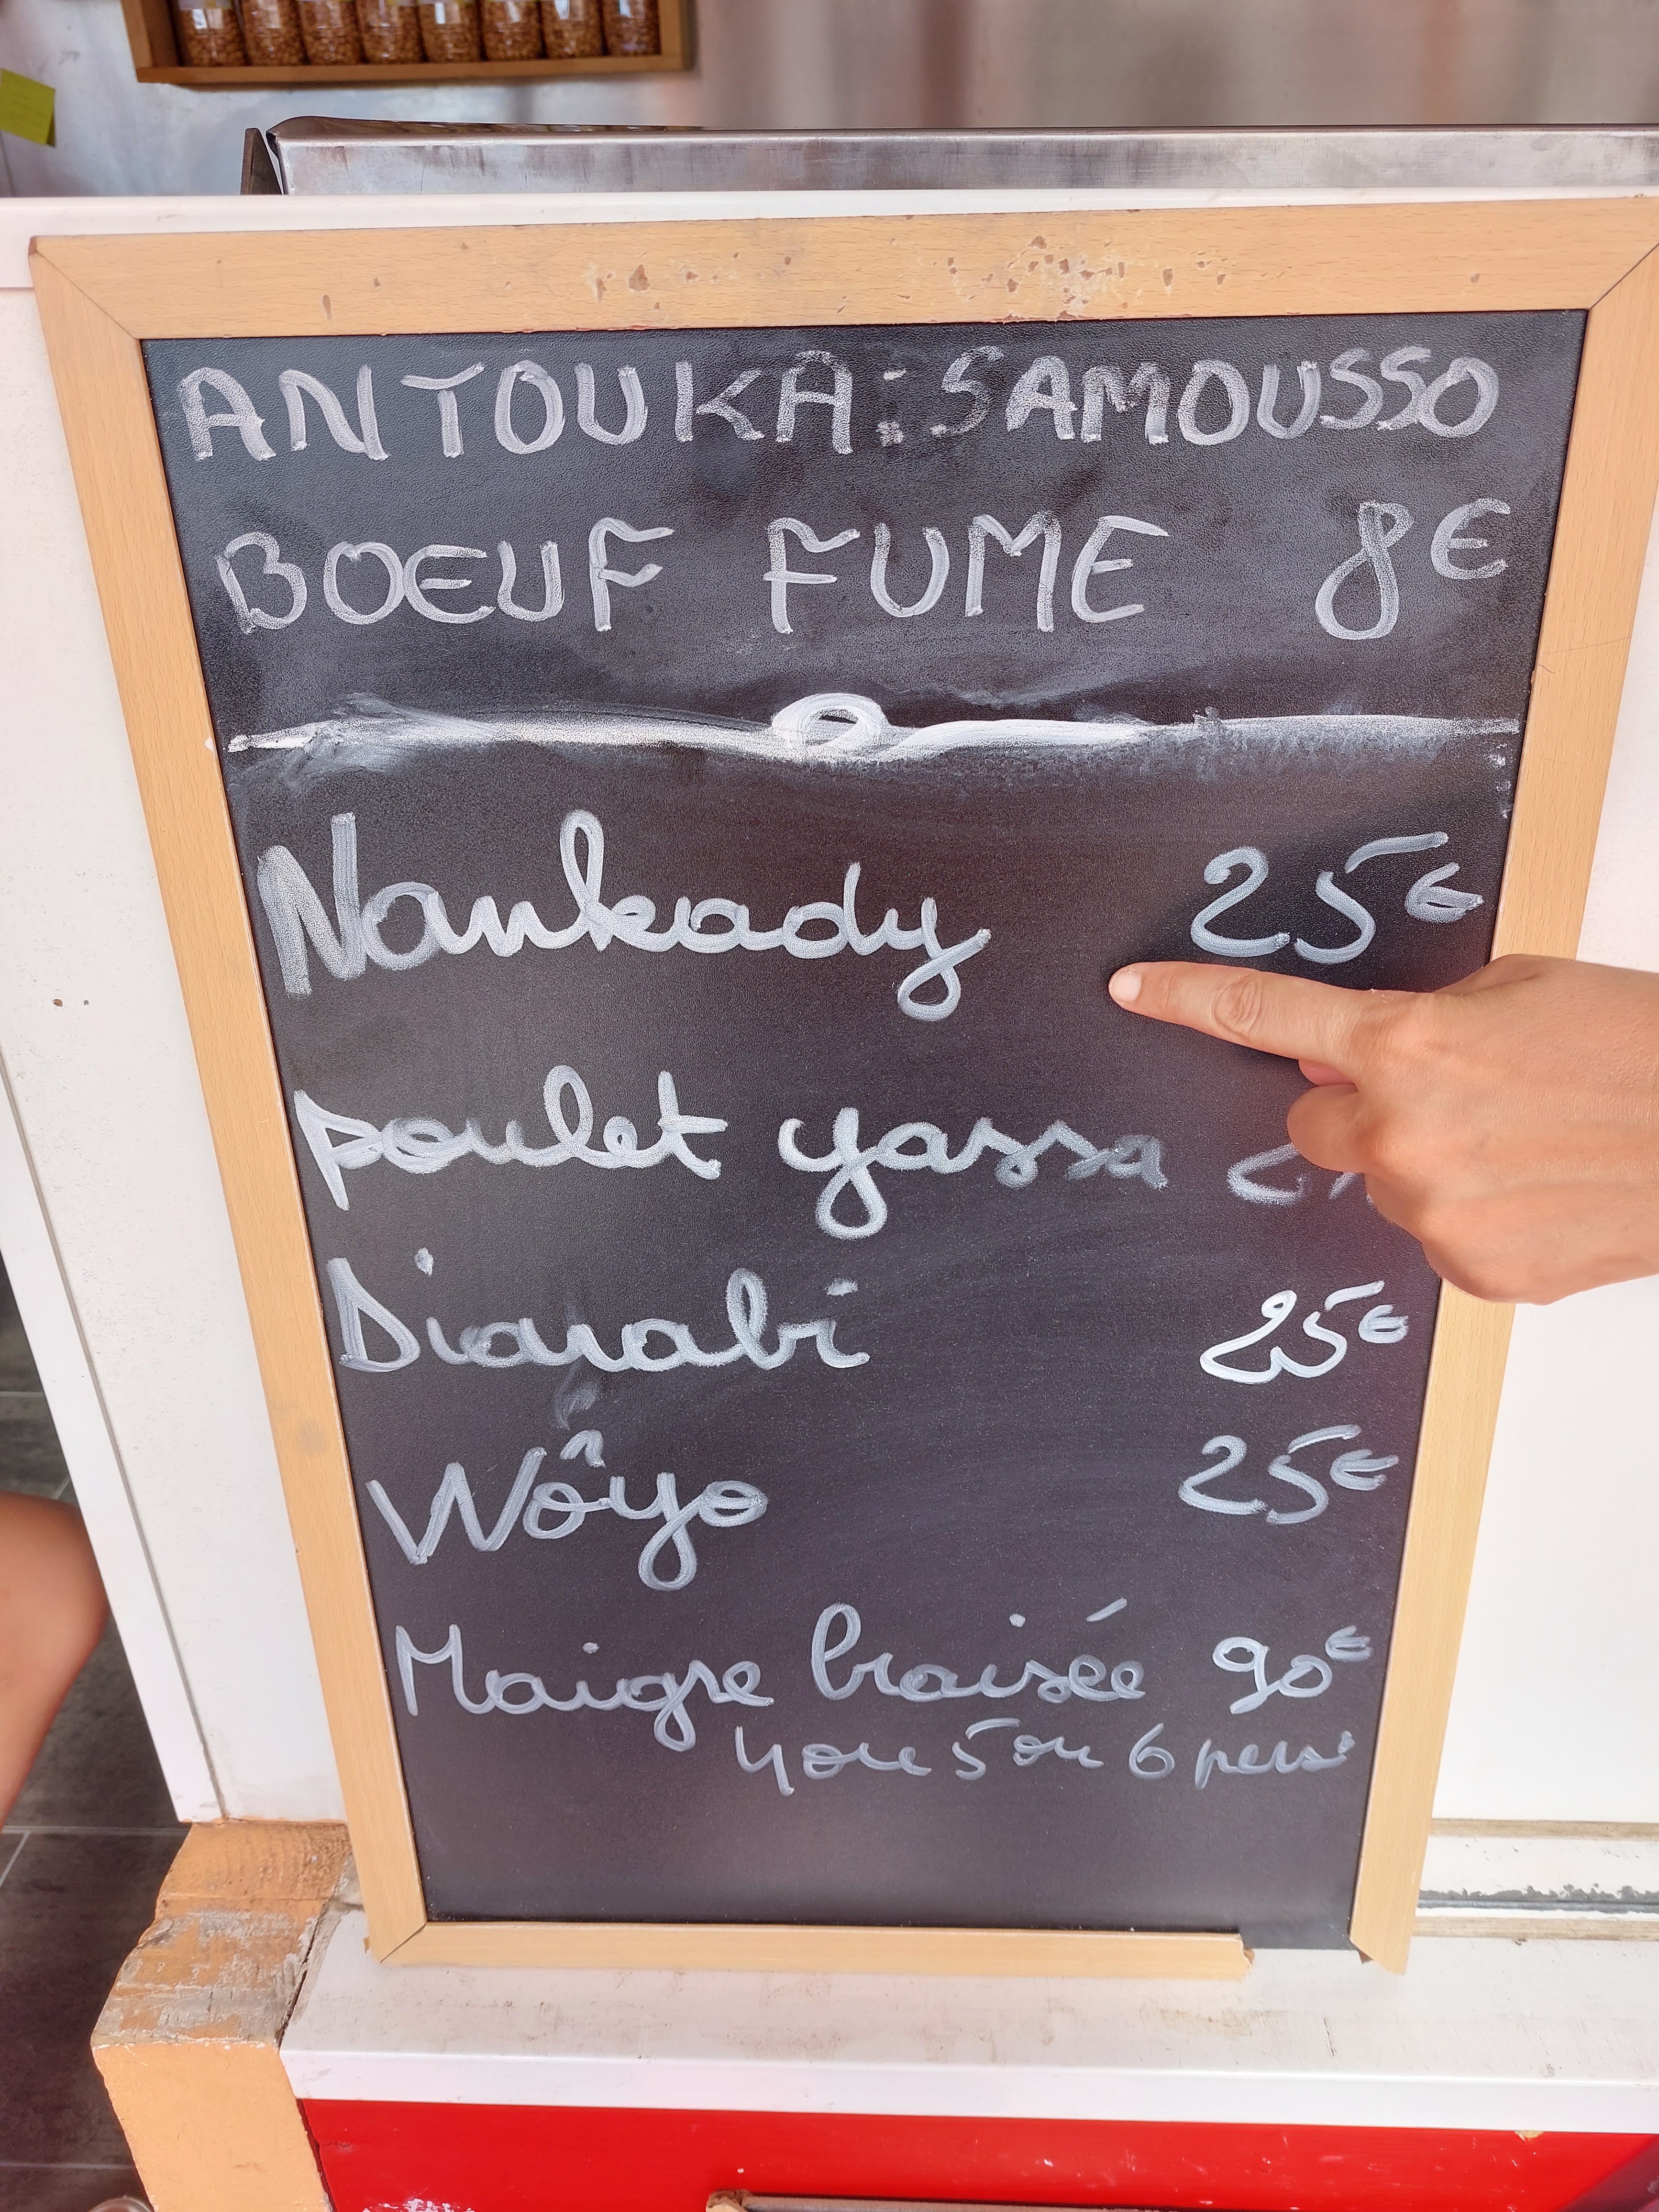 ANTOUKA: SAMOUSSO
BOEUF FUME 8€
Nankady 25€
poulet yassa
Diarabi 25€
Wôyo 25€
Maigre braisée 90€
4 ou 5 ou 6 pers